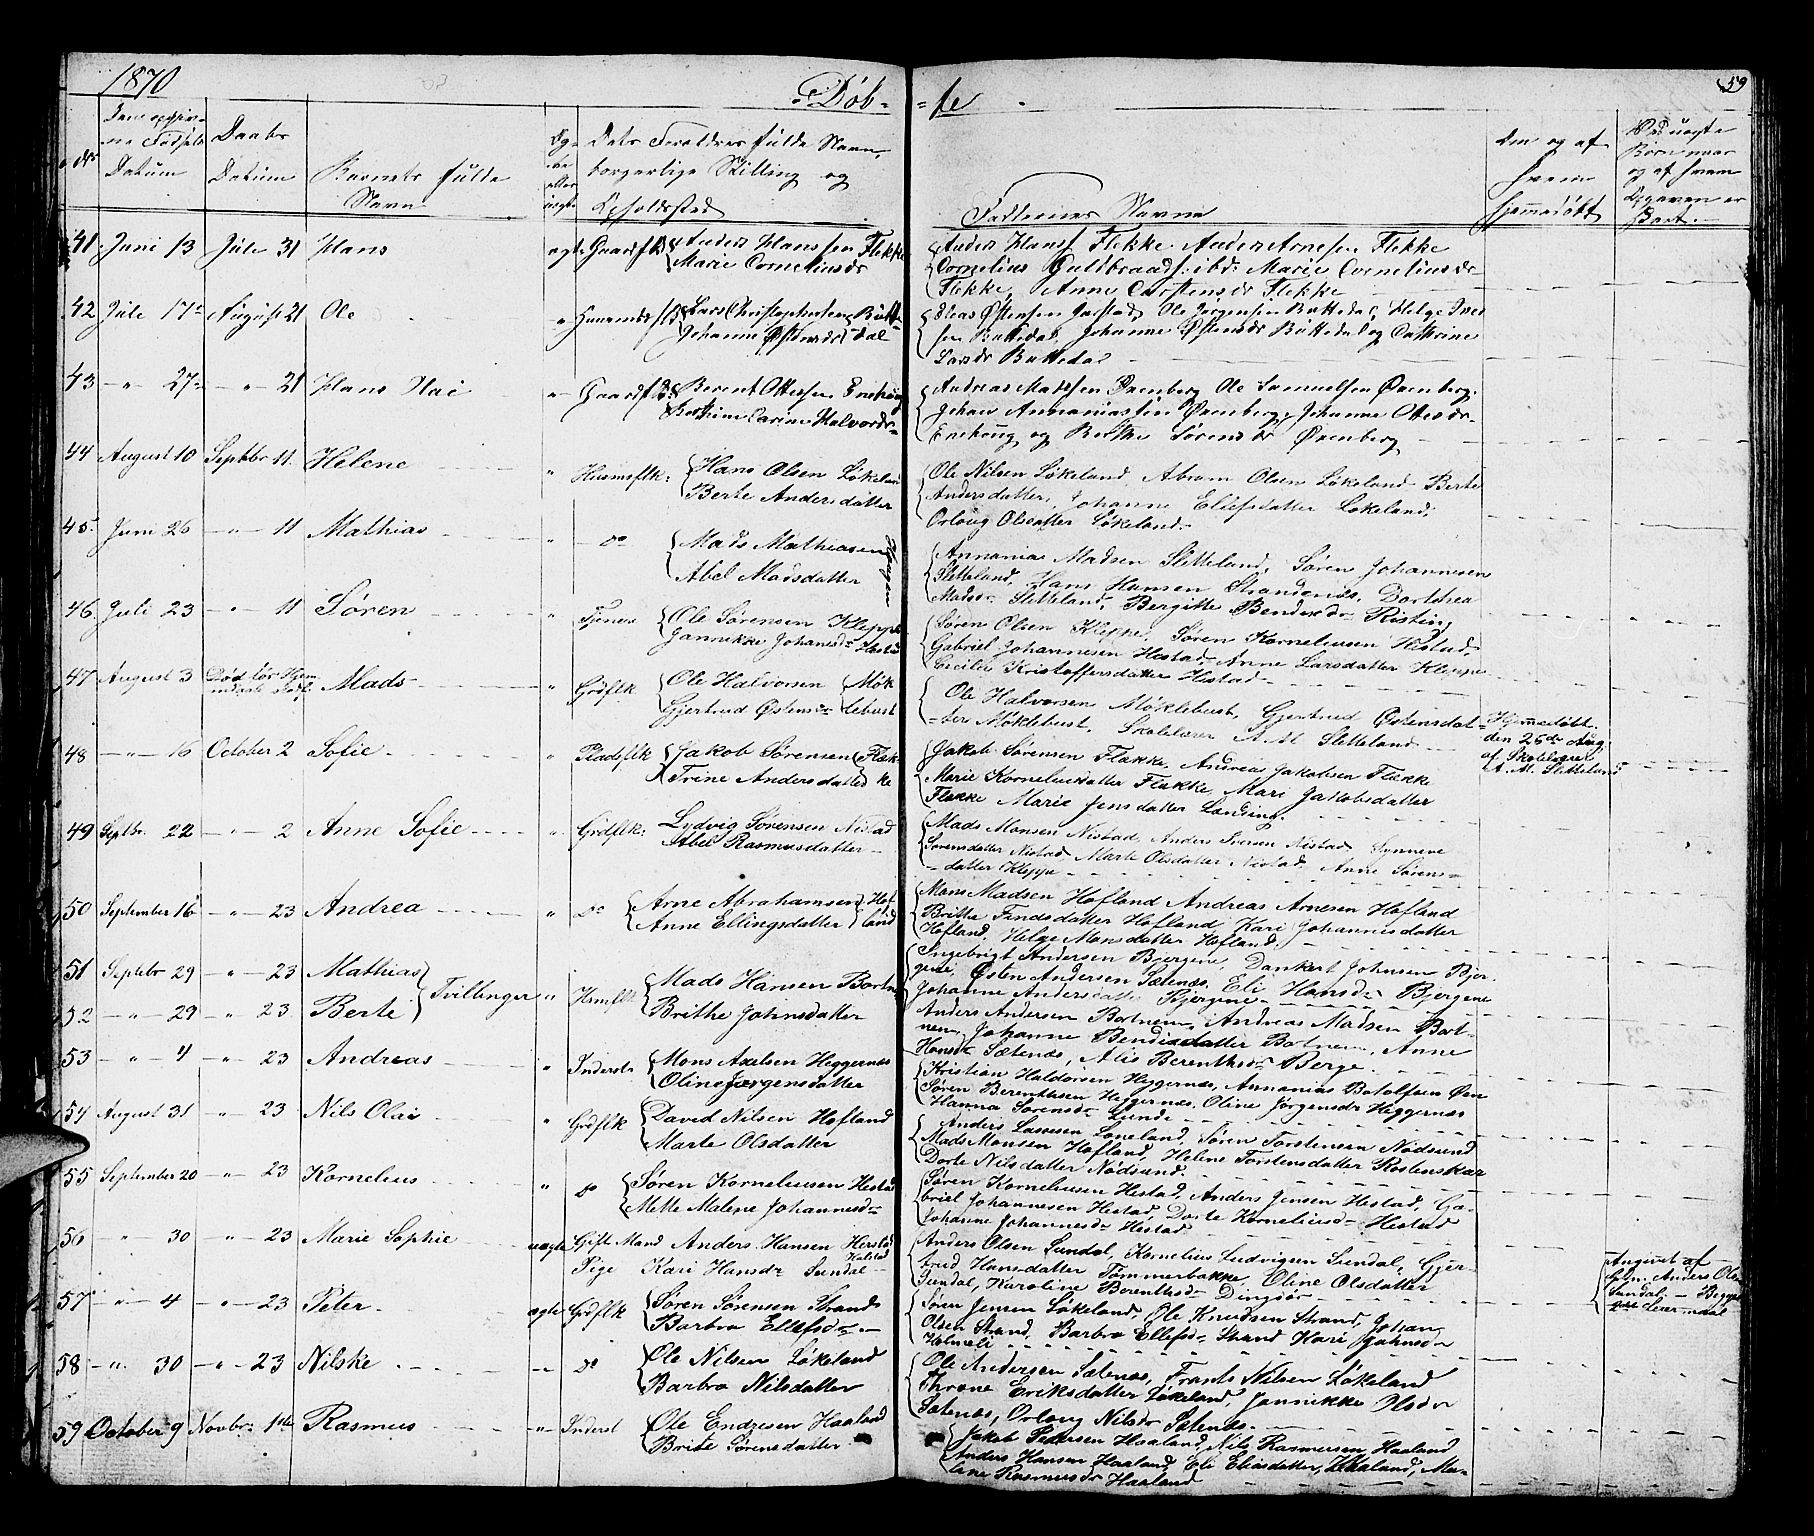 1870
Døb- -te
59
Daabs
Datum
Datum
Barnets fulde
Navn
Dets Forældres fulde Navn,
borgerlige Stilling og
Opholdssted
Faddernes Navne
Om og af
hvem
hjemmedøbt
41 Juni 13 Juli 31 Hans ægte Gaardfk Anders Hanssen Flekke
Marie Cornelius dr
Anders Hanss Flekke Anders Arnesen Flekke
Cornelius Guldbrands: ibd: Marie Cornelius dr
Flekke, Anne Carstens dr Flekke
42 Juli 17 August 21 Ole
Lars Christophersen Butte-
Johanne Østens dr dal
Ole Jørgensen Buttedal, Helge Iver
sen Buttedal, Johanne Østens dr Buttedal og Cathrine
Lars dr Buttedal
43 27 21 Hans Nai Gaardfk Bernt Ottesen Enehoug
Carine Halvordr
Andreas Madssen Ørenberg Ole Samuelsen Ørenberg.
Johan Annaniassen Ørenberg, Johanne Ottesdr
Enehoug og Berthe Sørens dr Ørenberg
44 August 10 Septbr 11. Helene Husmsflk: Hans Olsen Løkeland
Berte Andersdatter
Ole Nilsen Løkeland, Abram Olsen Løkeland Berte
Andersdatter, Johanne Ellefsdatter Løkeland,
Orloug Olsdatter Løkeland
45 Juni 26 11 Mathias do Mads Mathiasen Haugen
Abel Madsdatter
Annanias Madsen Sletteland, Søren Johannesen
Sletteland, Hans Hansen Strandenæs, Dorthea
Madsdr Sletteland, Bergitte Bendixdr Risting
46 Juli 23 11 Søren Tjener Ole Sørensen Kleppe
Jannikke Johannesdr Hestad
Søren Olsen Klekke, Søren Korneliusen Hestad,
Gabriel Johannesen Hestad, Anne Larsdatter Kleppe
Cecilie Kristoffersdatter Hestad
47 August 3 Død før Hjem-
Mads Grdflk Ole Halvorsen Møk-
Gjertrud Østensdr lebust
Ole Halvorsen Møklebust, Gjertrud Østensdat-
ter Møklebust, Skolelærer A. M. Sletteland
Hjemmedøbt
den 25de Aug.
af Skolelærer
A. M. Sletteland
48 16 October 2 Sofie Pladsflk Jakob Sørensen Flæk-
Trine Andersdatter ke
Jakob Sørensen Flække, Andreas Jakobsen Flække
Marie Korneliusdatter Flække, Mari Jakobsdatter
Flække Marie Jensdatter Landing.
49 Septbr. 22 2 Anne Sofie Grdflk: Lydvig Sørensen Nistad
Abel Rasmusdatter
Mads Monsen Nistad, Anders Iversen Nistad, Synneve
Sørensdatter Nistad Marte Olsdatter Nistad Anne Sørens-
datter Kleppe
50 September 16 23 Andrea do Arne Abrahamsen Hof-
Anne Ellingsdatter land
Mons Madsen Hofland Andreas Arnesen Hofland
Brithe Findsdatter Hofland Kari Johannesdatter
Hofland, Helge Monsdatter Hofland.
51 Septebr 29 23 Mathias Tvillinger Hsmflk Mads Hansen Botnen
52 29 23 Berte Brithe Johnsdatter
Ingebrigt Andersen Bjergene, Dankert Johnsen Bjer-
gene, Østen Andersen Sætenæs, Eli Hansdr Bjergene
Johanne Andersdatter Bjergene
Anders Andersen Botnen, Andreas Madsen Bot-
nen, Johanne Bendixdatter Botnen, Anne
Hansdr Sætenæs, Alis Berenthsdr Berge
53 4 23 Andreas Inderst Mons Axelsen Heggernæs
Oline Jørgensdatter
Kristian Haldorsen Heggernæs, Annanias Botolfsen Øen
Søren Berenthsen Heggernæs, Oline Jørgensdr Heggernæs
Hanna Sørensdr Lunde
54 August 31 23 Nils Olai Grdflk David Nilsen Hofland
Marte Olsdatter
Anders Lassesen Loneland, Søren Torstensen Nødsund
Mads Monsen Hofland, Helene Torstensdatter Rostenskar
Dorte Nilsdatter Nødsund.
55 September 20 23 Kornelius do Søren Korneliusen Hestad
Mette Malene Johannesdr
Søren Korneliusen Hestad, Anders Jensen Hestad, Ga-
briel Johannesen Hestad, Dorte Korneliusdr Hestad
Johanne Johannesdr Hestad
56 30 23 Marie Sophie uægte Gift Mand Anders Hansen Herstad
Pige Kari Hansdr Sundal
Anders Olsen Sundal, Kornelius Ludvigsen Sundal, Gjer-
trud Hansdatter Tømmerbakke, Oline Olsdatter
Sundal, Karoline Berenthsdr Dingdør
Angivet af
Anders Olsen
Sundal
57 4 23 Peter ægte Grdflk Søren Sørensen Strand
Barbro Ellefsdr
Søren Jensen Løkeland, Ole Knudsen Strand, Johan
Olsen Strand, Barbro Ellefsdr Strand Kari Johnsdr
Holmeli
58 30 23 Nilske do Ole Nilsen Løkeland
Barbro Nilsdatter
Ole Andersen Sætenæs, Frants Nilsen Løkeland
Throne Eriksdatter Løkeland, Jannikke Olsdr
Sætenæs, Orloug Nilsdr Sætenæs
59 October 9 Novbr 1ste Rasmus Inderst Ole Endresen Haaland
Brite Sørensdatter
Jakob Pedersen Haaland, Nils Rasmussen Haaland
Anders Hansen Haaland, Eli Eliasdatter, Haaland, Ma-
lene Rasmusdr Haaland